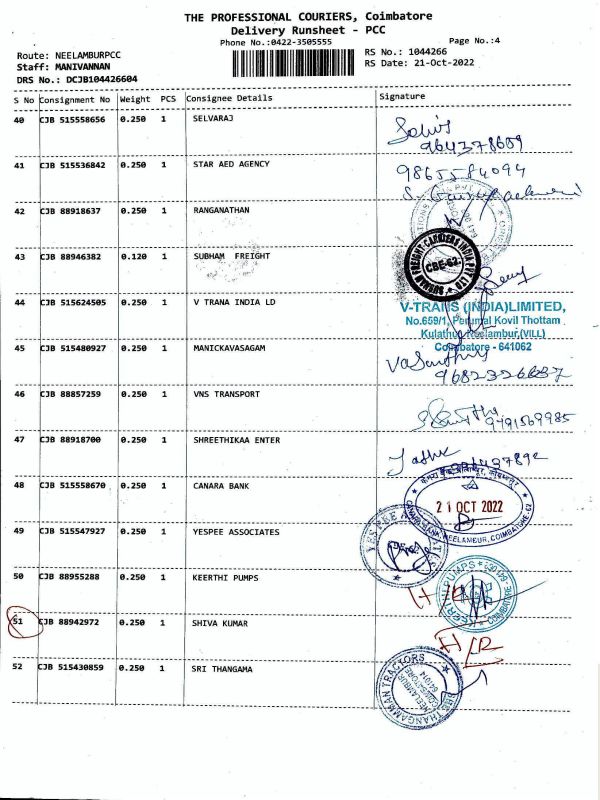 THE PROFESSIONAL COURIERS, Coimbatore
Delivery Runsheet - PCC
Phone No.:0422-3505555
Page No.:4
Route: NEELAMBURPCC
Staff: MANIVANNAN
DRS No.: DCJB104426604
RS No.: 1044266
RS Date: 21-Oct-2022
S No Consignment No Weight PCS Consignee Details Signature
40 CJB 515558656 0.250 1 SELVARAJ
9643378609
41 CJB 515536842 0.250 1 STAR AED AGENCY
9865584094
42 CJB 88918637 0.250 1 RANGANATHAN
43 CJB 88946382 0.120 1 SUBHAM FREIGHT
SUBHAM FREIGHT CARRIERS INDIA PVT LTD
CBE-62
44 CJB 515624505 0.250 1 V TRANA INDIA LD
V-TRANS (INDIA)LIMITED,
No.659/1, Perumal Kovil Thottam
Kulathur, Neelambur,(VILL)
Coimbatore - 641062
45 CJB 515480927 0.250 1 MANICKAVASAGAM
Vasanthi
46 CJB 88857259 0.250 1 VNS TRANSPORT
9791569985
47 CJB 88918700 0.250 1 SHREETHIKAA ENTER
48 CJB 515558670 0.250 1 CANARA BANK
21 OCT 2022
CANARA BANK, NEELAMBUR, COIMBATORE-62
49 CJB 515547927 0.250 1 YESPEE ASSOCIATES
YESPEE ASSOCIATES
50 CJB 88955288 0.250 1 KEERTHI PUMPS
KEERTHI PUMPS
COIMBATORE
51 CJB 88942972 0.250 1 SHIVA KUMAR
H/R
52 CJB 515430859 0.250 1 SRI THANGAMA
SRI THANGAMMAN TRACTORS
NEELAMBUR
COIMBATORE
641014